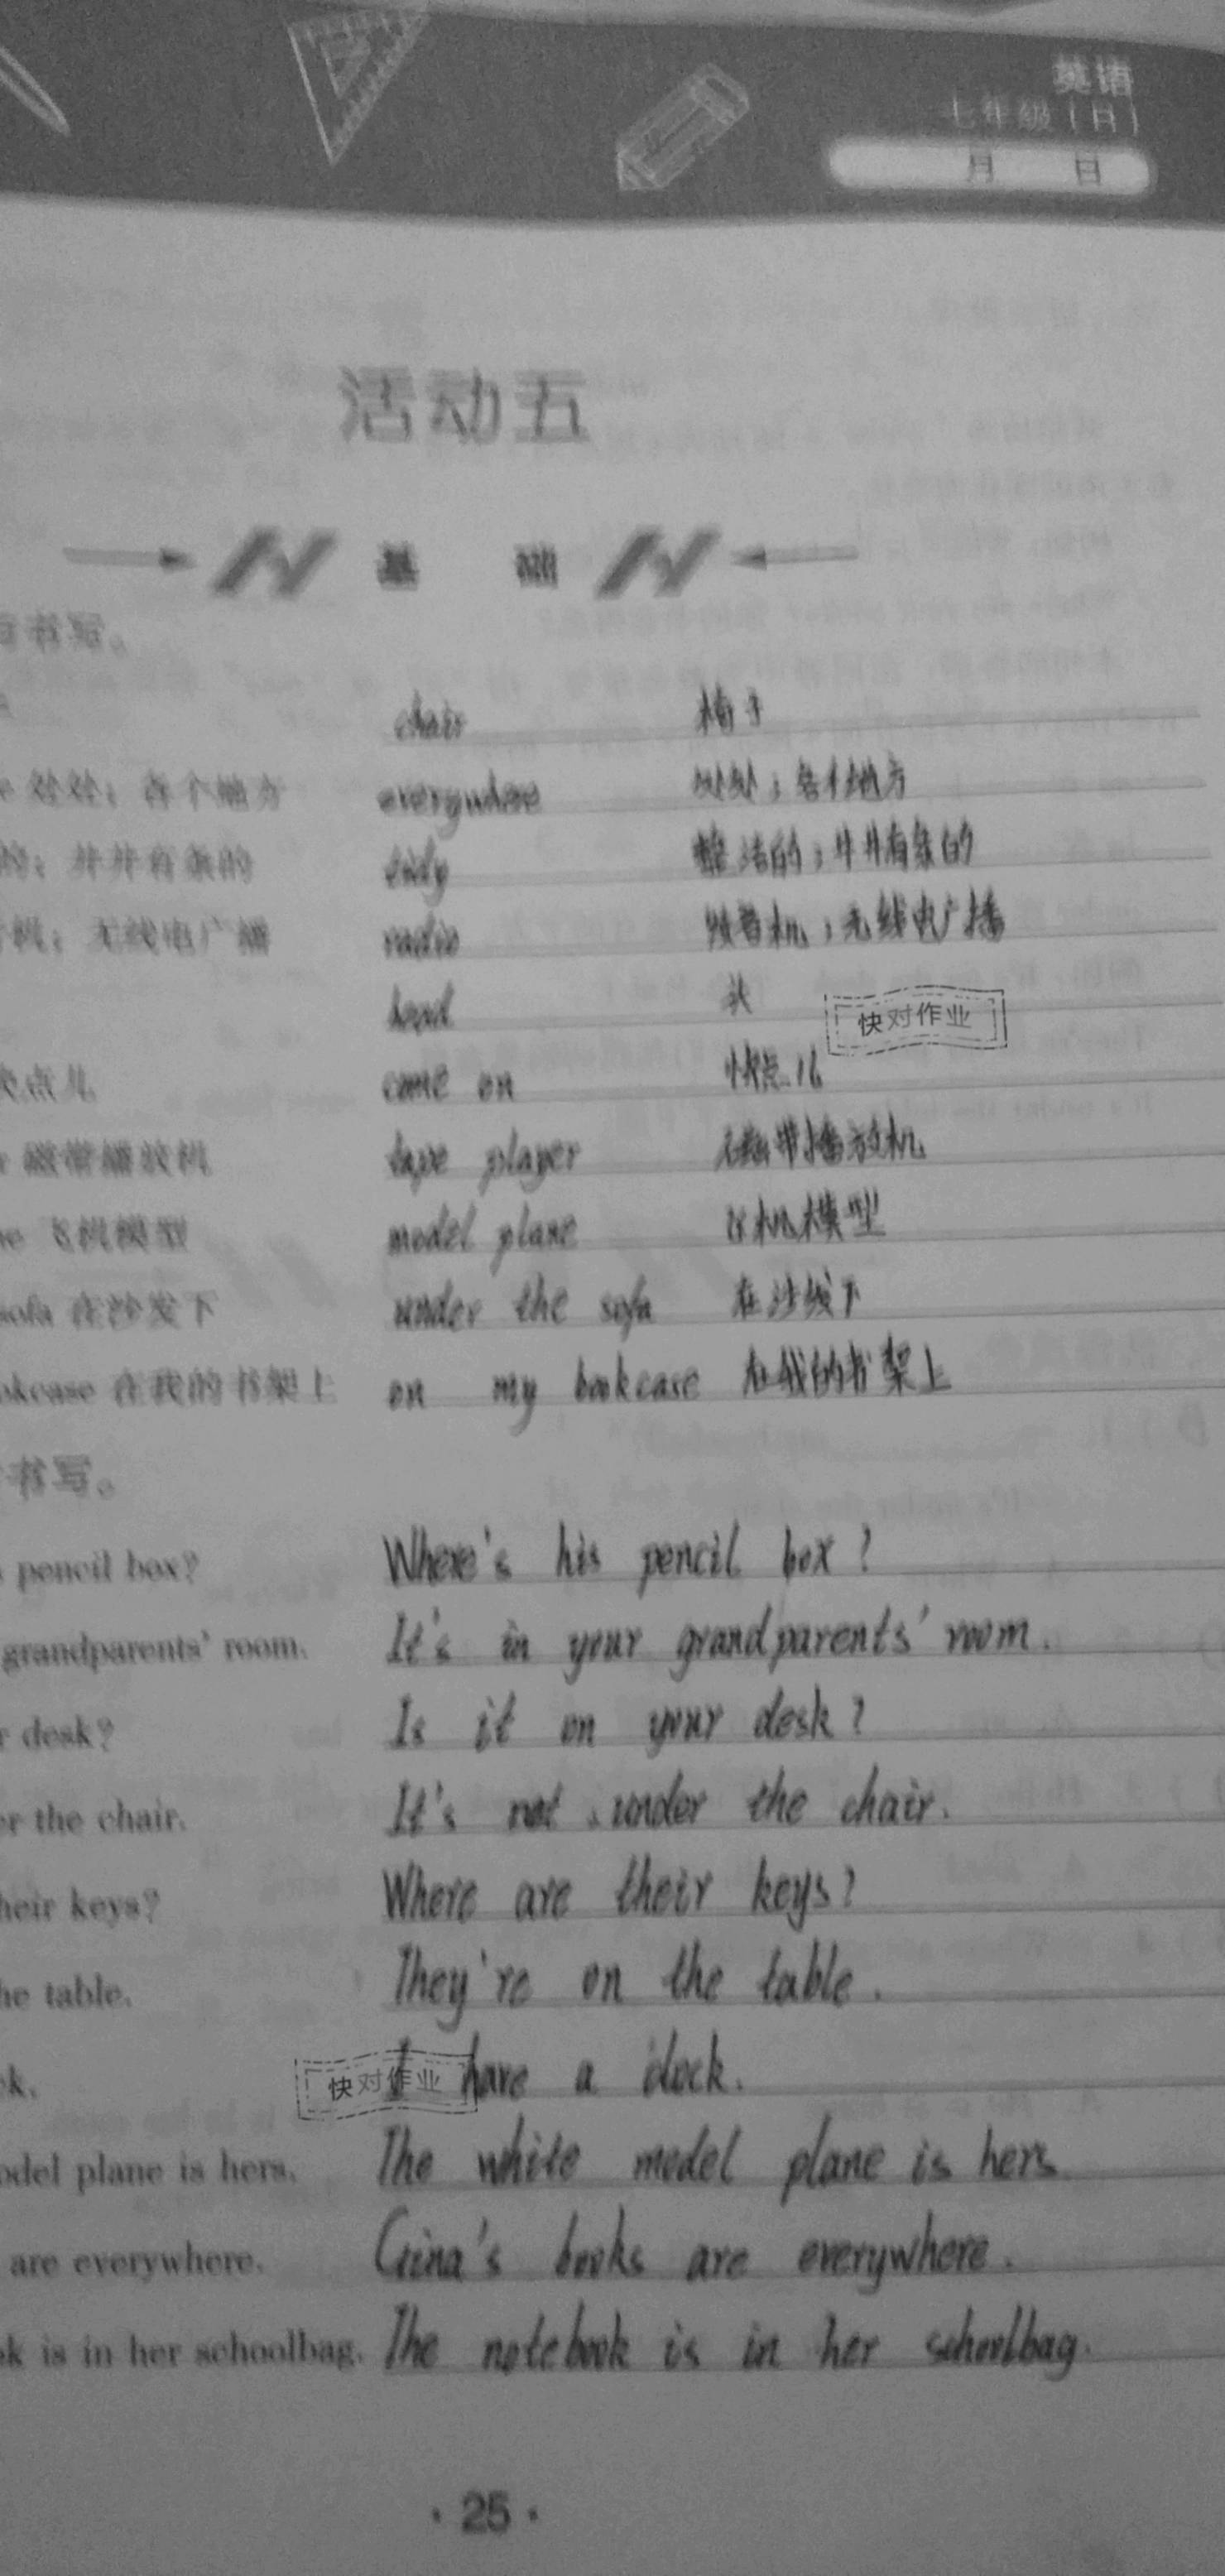 英语
七年级(RJ)
月 日
活动五
基 础
与书写。
chair 椅子
处处；各个地方 everywhere 处处；各个地方
的；井井有条的 tidy 整洁的；井井有条的
机；无线电广播 radio 收音机；无线电广播
head 头
快对作业
快点儿 come on 快点儿
磁带播放机 tape player 磁带播放机
飞机模型 model plane 飞机模型
sofa 在沙发下 under the sofa 在沙发下
okcase 在我的书架上 on my bookcase 在我的书架上
书写。
pencil box? Where's his pencil box?
grandparents' room. It's in your grandparents' room.
r desk? Is it on your desk?
er the chair. It's not under the chair.
heir keys? Where are their keys?
he table. They're on the table.
k. I have a clock.
快对作业
odel plane is hers. The white model plane is hers
are everywhere. Gina's books are everywhere.
k is in her schoolbag. The notebook is in her schoolbag.
· 25 ·